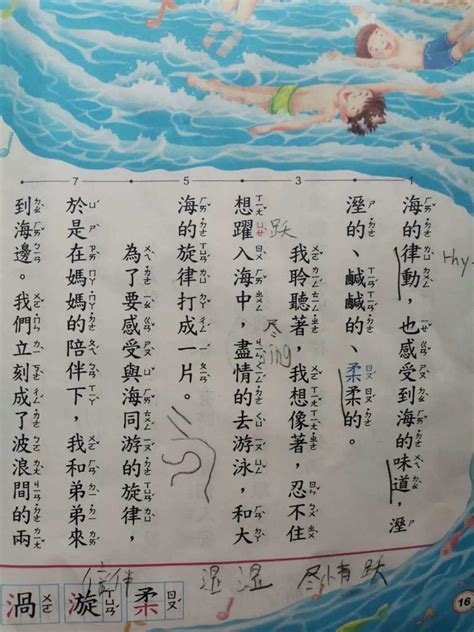 1
海的律動，也感受到海的味道，溼
溼的、鹹鹹的、柔柔的。
3
我聆聽著，我想像著，忍不住
想躍入海中，盡情的去游泳，和大
5
海的旋律打成一片。
為了要感受與海同游的旋律，
7
於是在媽媽的陪伴下，我和弟弟來
到海邊。我們立刻成了波浪間的兩
跃
尽
ing
湿 湿
尽情 跃
柔 ㄖㄡˊ
漩 ㄒㄩㄢˊ
渦 ㄨㄛ
16